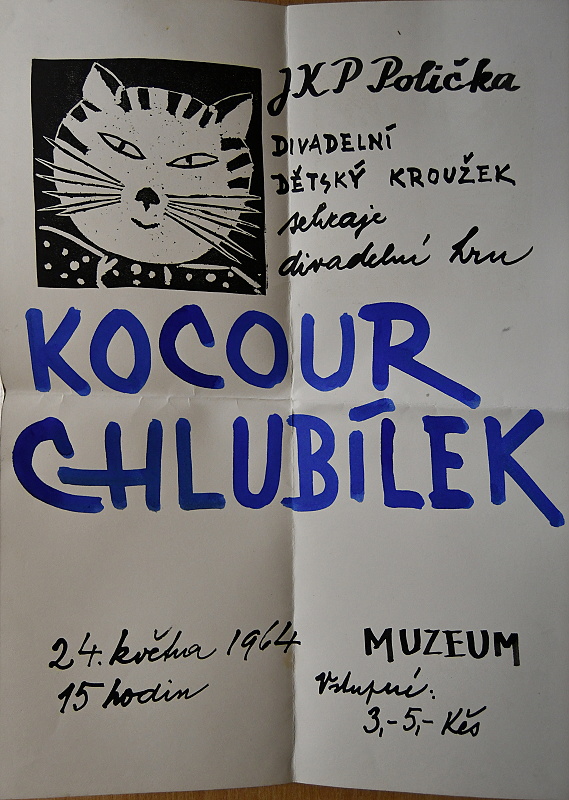 JKP Polička
DIVADELNÍ
DĚTSKÝ KROUŽEK
sehraje
divadelní hru
KOCOUR
CHLUBÍLEK
24. května 1964
15 hodin
MUZEUM
Vstupné:
3,- 5,- Kčs